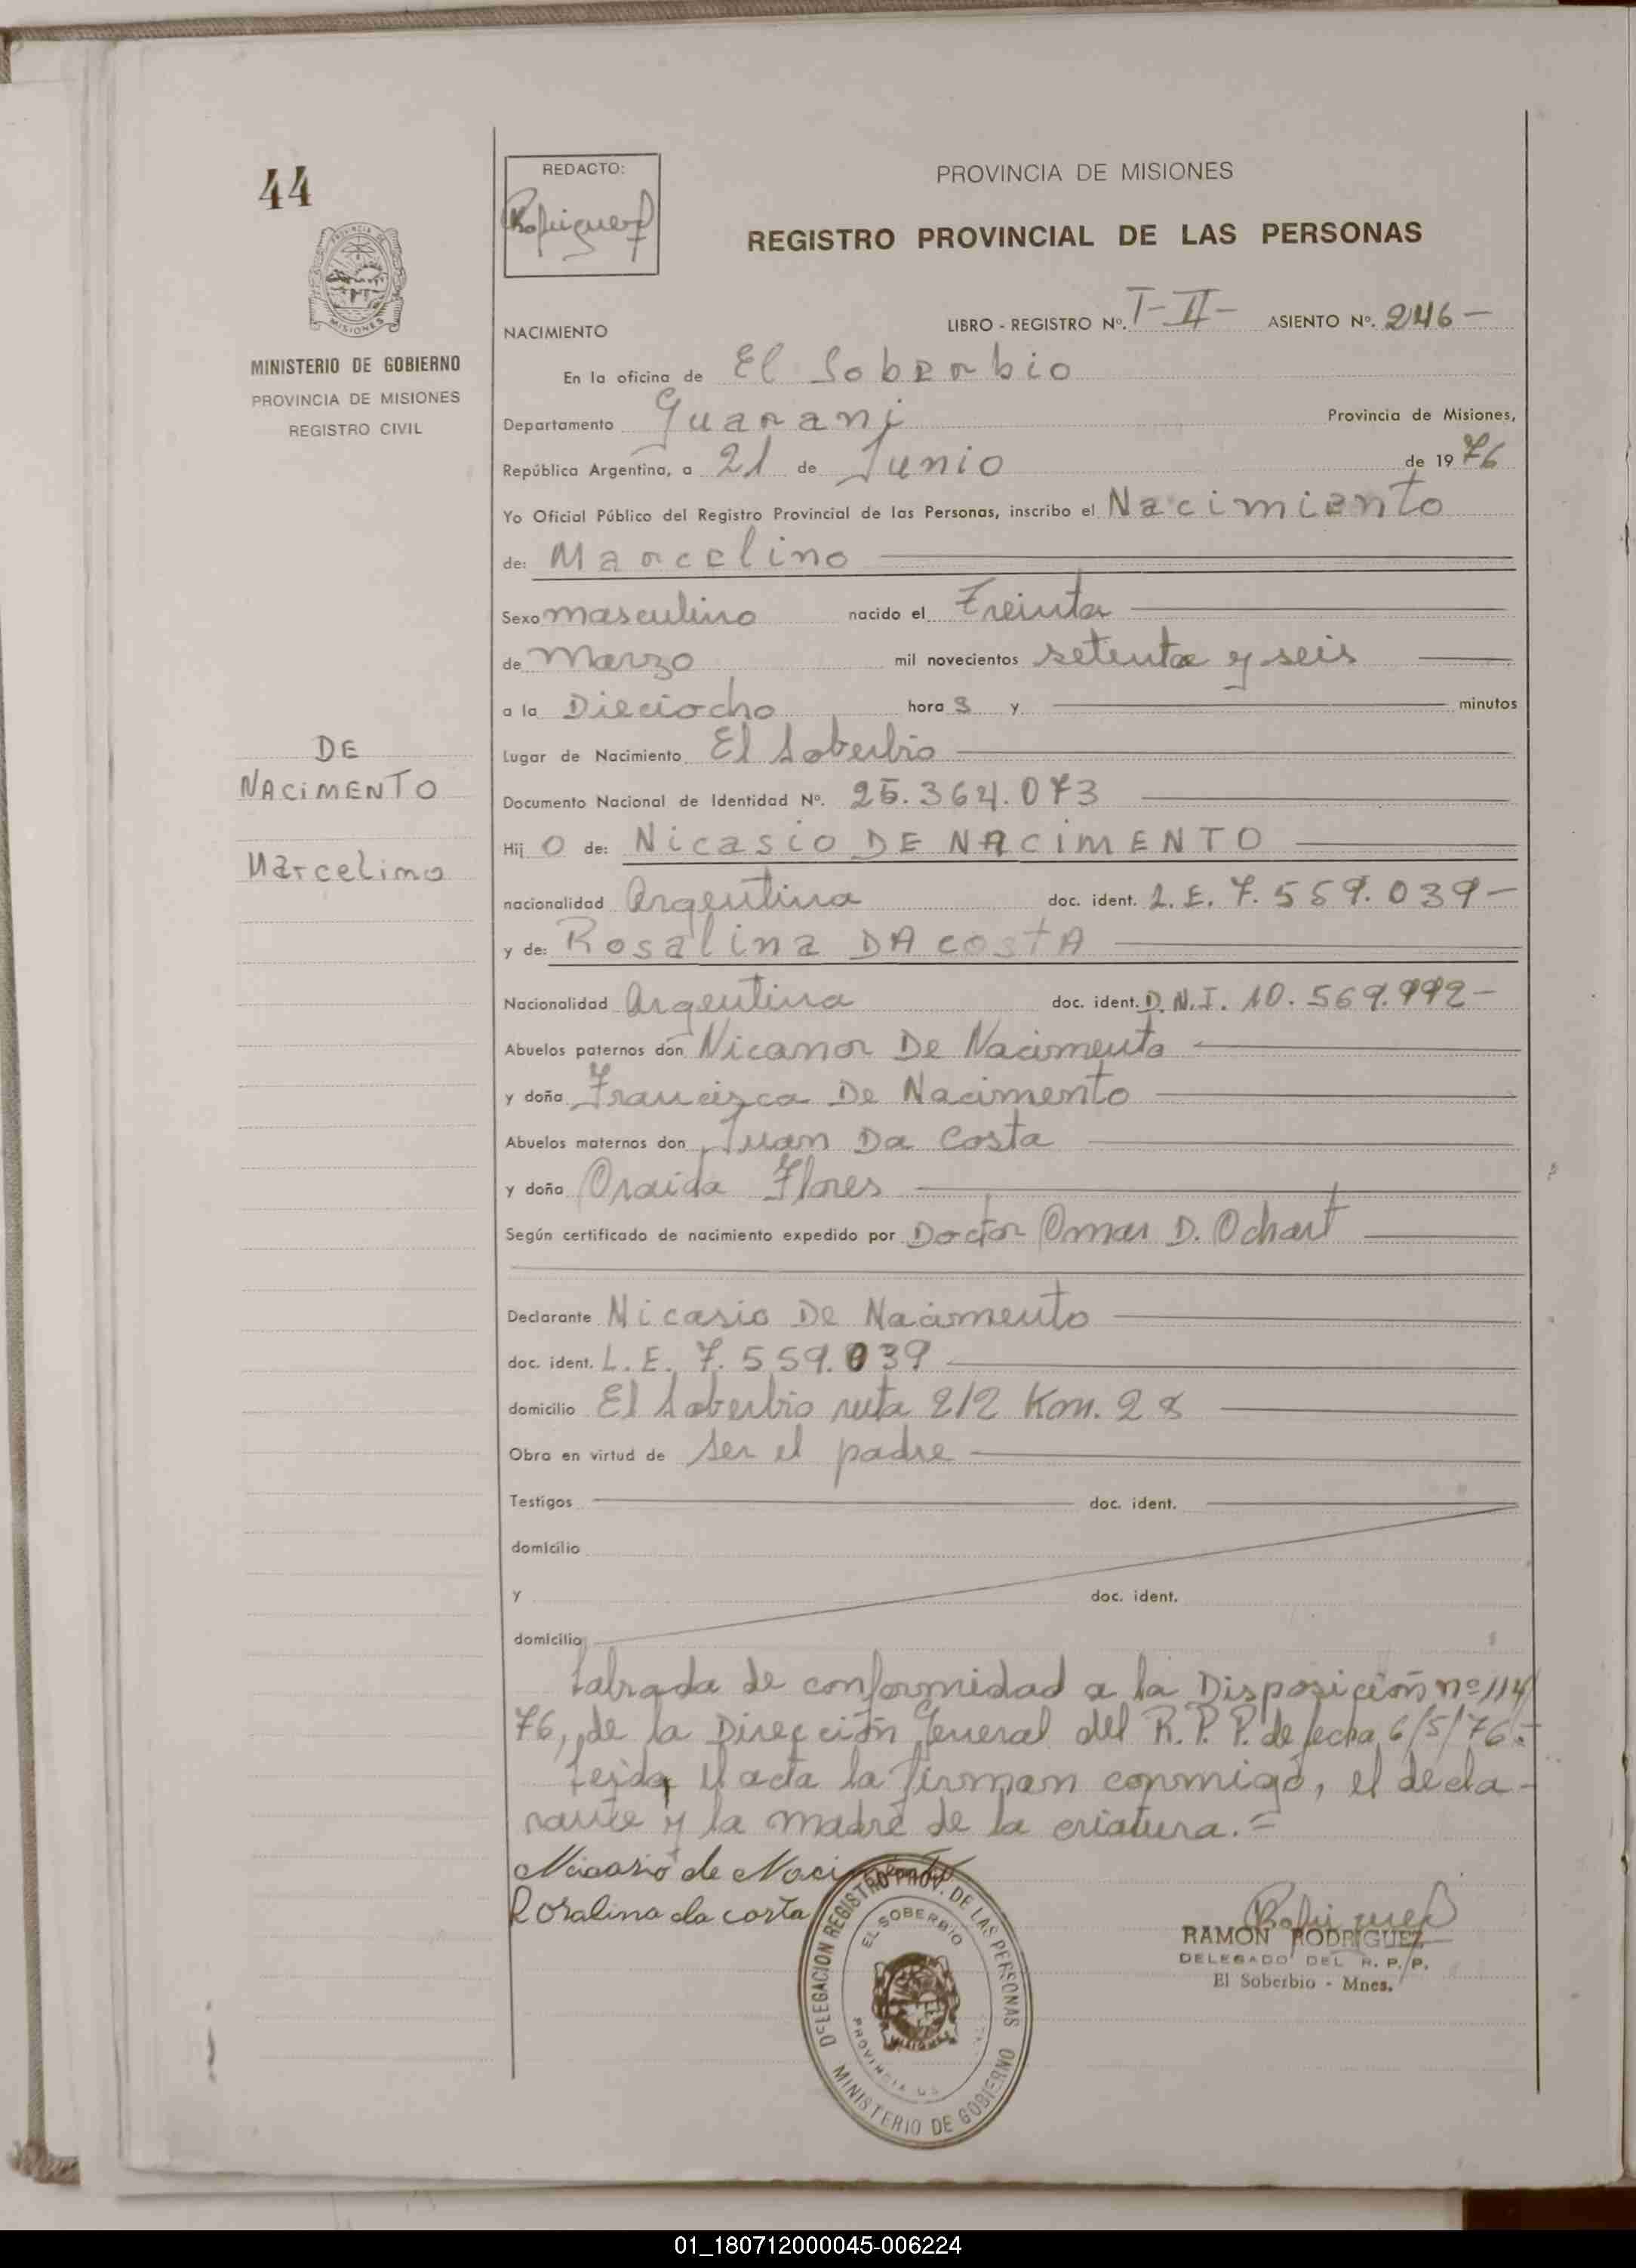 44
REDACTO:
PROVINCIA DE MISIONES
REGISTRO PROVINCIAL DE LAS PERSONAS
MISIONES
MINISTERIO DE GOBIERNO
PROVINCIA DE MISIONES
REGISTRO CIVIL
NACIMIENTO LIBRO - REGISTRO Nº. I-II- ASIENTO Nº. 246-
En la oficina de El Soberbio
Departamento Guarani Provincia de Misiones,
República Argentina, a 21 de Junio de 1976
Yo Oficial Público del Registro Provincial de las Personas, inscribo el Nacimiento
de: Marcelino
Sexo masculino nacido el Treinta
de Marzo mil novecientos setenta y seis
a la Dieciocho hora s y minutos
Lugar de Nacimiento El Soberbio
DE
NACIMENTO
Marcelino
Documento Nacional de Identidad Nº. 25.364.073
Hij o de: Nicasio DE NACIMENTO
nacionalidad Argentina doc. ident. L.E. 7.559.039-
y de: Rosalina DA COSTA
Nacionalidad Argentina doc. ident. D.N.I. 10.569.992-
Abuelos paternos don Nicanor De Nacimento
y doña Francisca De Nacimento
Abuelos maternos don Juan Da Costa
y doña Oraida Flores
Según certificado de nacimiento expedido por Doctor Omar D. Ochart
Declarante Nicasio De Nacimento
doc. ident. L.E. 7.559.039
domicilio El Soberbio ruta 212 Km. 28
Obra en virtud de ser el padre
Testigos doc. ident.
domicilio
y doc. ident.
domicilio
Labrada de conformidad a la Disposición nº 114
76, de la Dirección General del R.P.P. de fecha 6/5/76.-
Leida el acta la firman conmigo, el decla-
rante y la madre de la criatura.=
Nicasio de Nacimento
Rosalina da costa
DELEGACION REGISTRO PROV. DE LAS PERSONAS
EL SOBERBIO
MINISTERIO DE GOBIERNO
RAMON RODRIGUEZ
DELEGADO DEL R. P. P.
El Soberbio - Mnes.
01_180712000045-006224